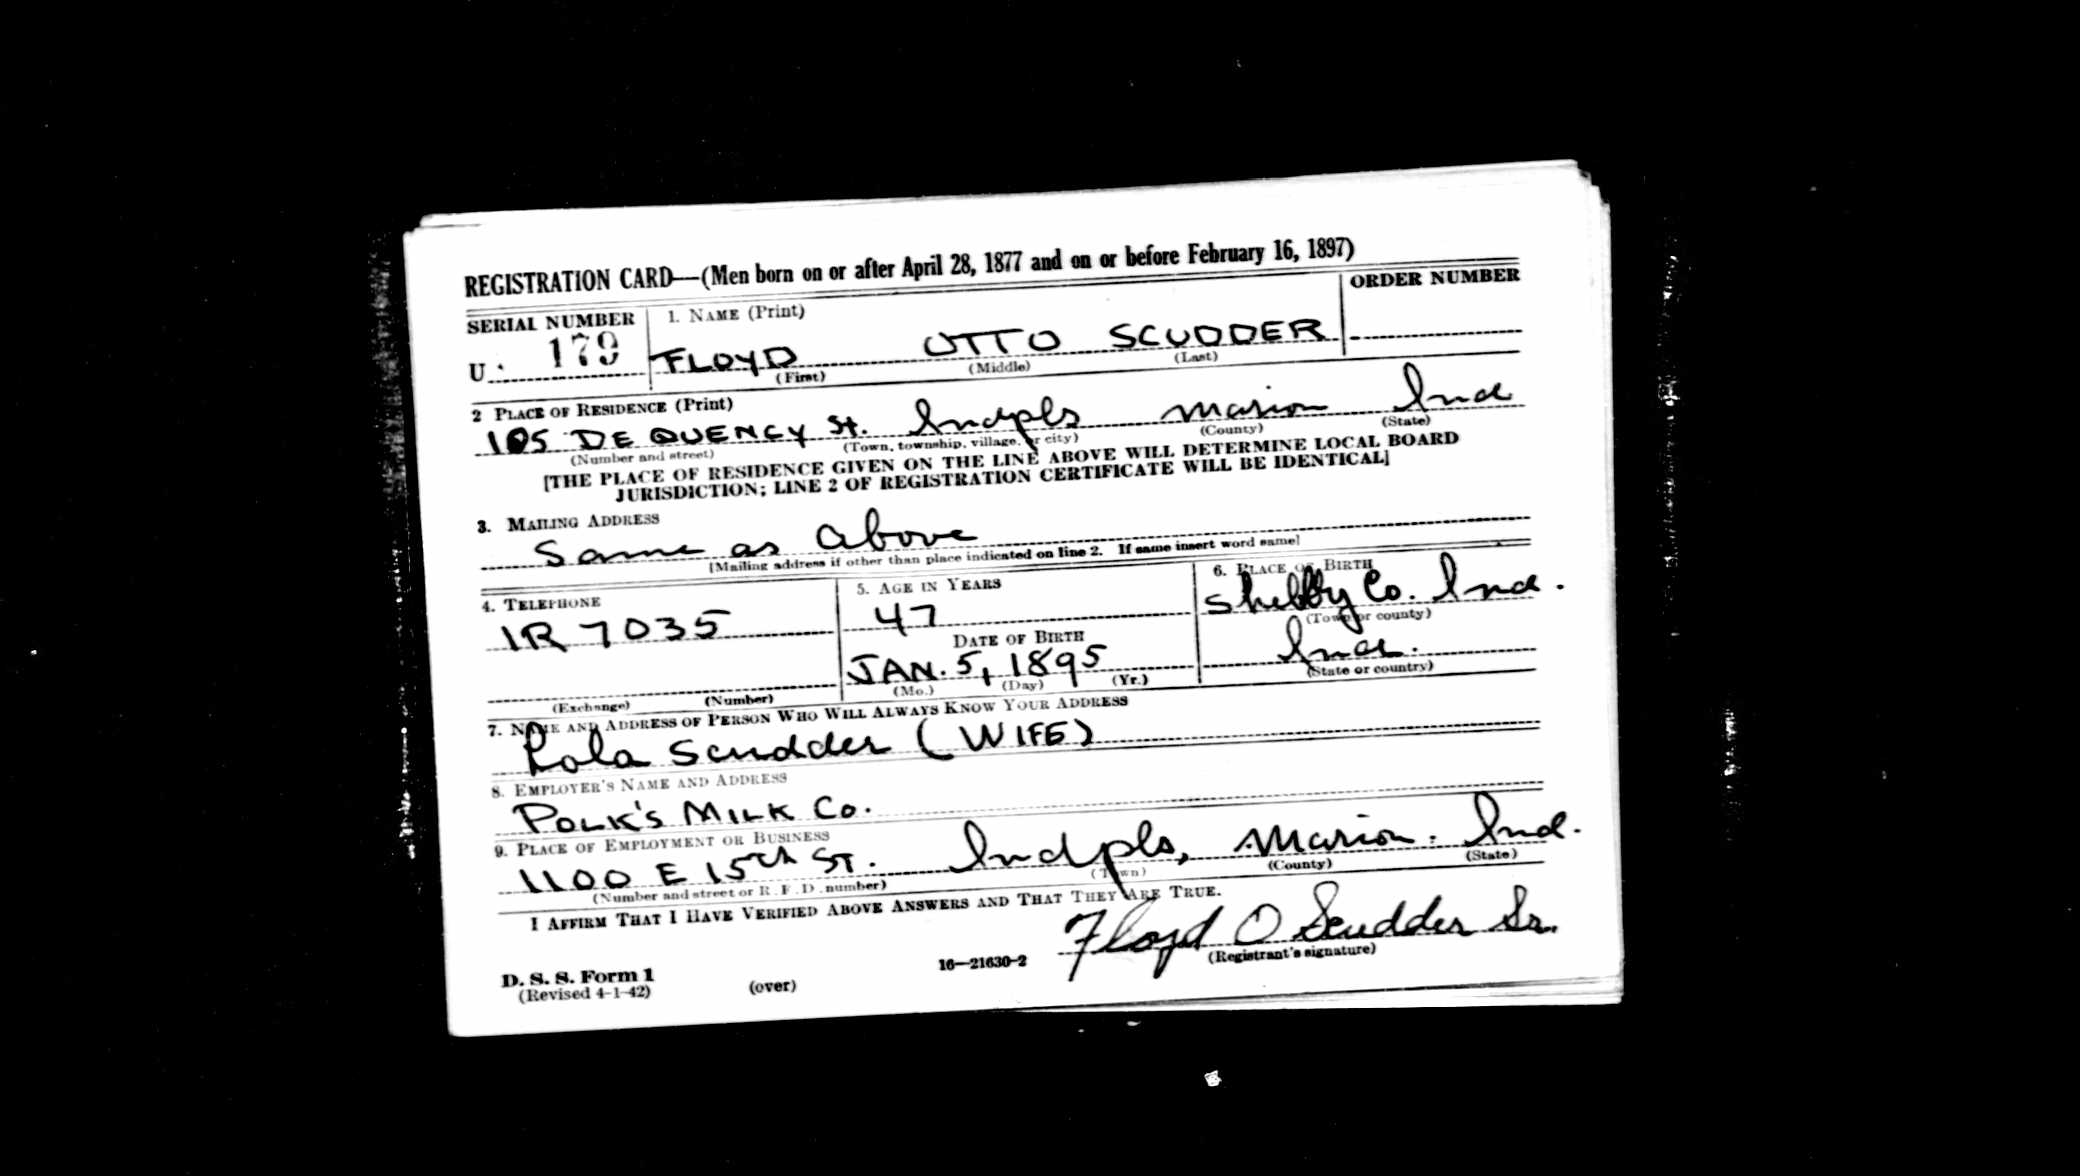 REGISTRATION CARD—(Men born on or after April 28, 1877 and on or before February 16, 1897)
SERIAL NUMBER 1. NAME (Print) ORDER NUMBER
U 179 FLOYD OTTO SCUDDER
(First) (Middle) (Last)
2 PLACE OF RESIDENCE (Print)
105 DE QUENCY St. Indpls Marion Ind
(Number and street) (Town, township, village, or city) (County) (State)
[THE PLACE OF RESIDENCE GIVEN ON THE LINE ABOVE WILL DETERMINE LOCAL BOARD
JURISDICTION; LINE 2 OF REGISTRATION CERTIFICATE WILL BE IDENTICAL]
3. MAILING ADDRESS
Same as above
[Mailing address if other than place indicated on line 2. If same insert word same]
4. TELEPHONE 5. AGE IN YEARS 6. PLACE OF BIRTH
IR 7035 47 Shelby Co. Ind.
DATE OF BIRTH (Town or county)
JAN. 5, 1895 Ind.
(Exchange) (Number) (Mo.) (Day) (Yr.) (State or country)
7. NAME AND ADDRESS OF PERSON WHO WILL ALWAYS KNOW YOUR ADDRESS
Lola Scudder (WIFE)
8. EMPLOYER'S NAME AND ADDRESS
POLK'S MILK Co.
9. PLACE OF EMPLOYMENT OR BUSINESS
1100 E 15th ST. Indpls, Marion. Ind.
(Number and street or R. F. D. number) (Town) (County) (State)
I AFFIRM THAT I HAVE VERIFIED ABOVE ANSWERS AND THAT THEY ARE TRUE.
Floyd O Scudder Sr.
D. S. S. Form 1 16—21630-2 (Registrant's signature)
(Revised 4-1-42) (over)